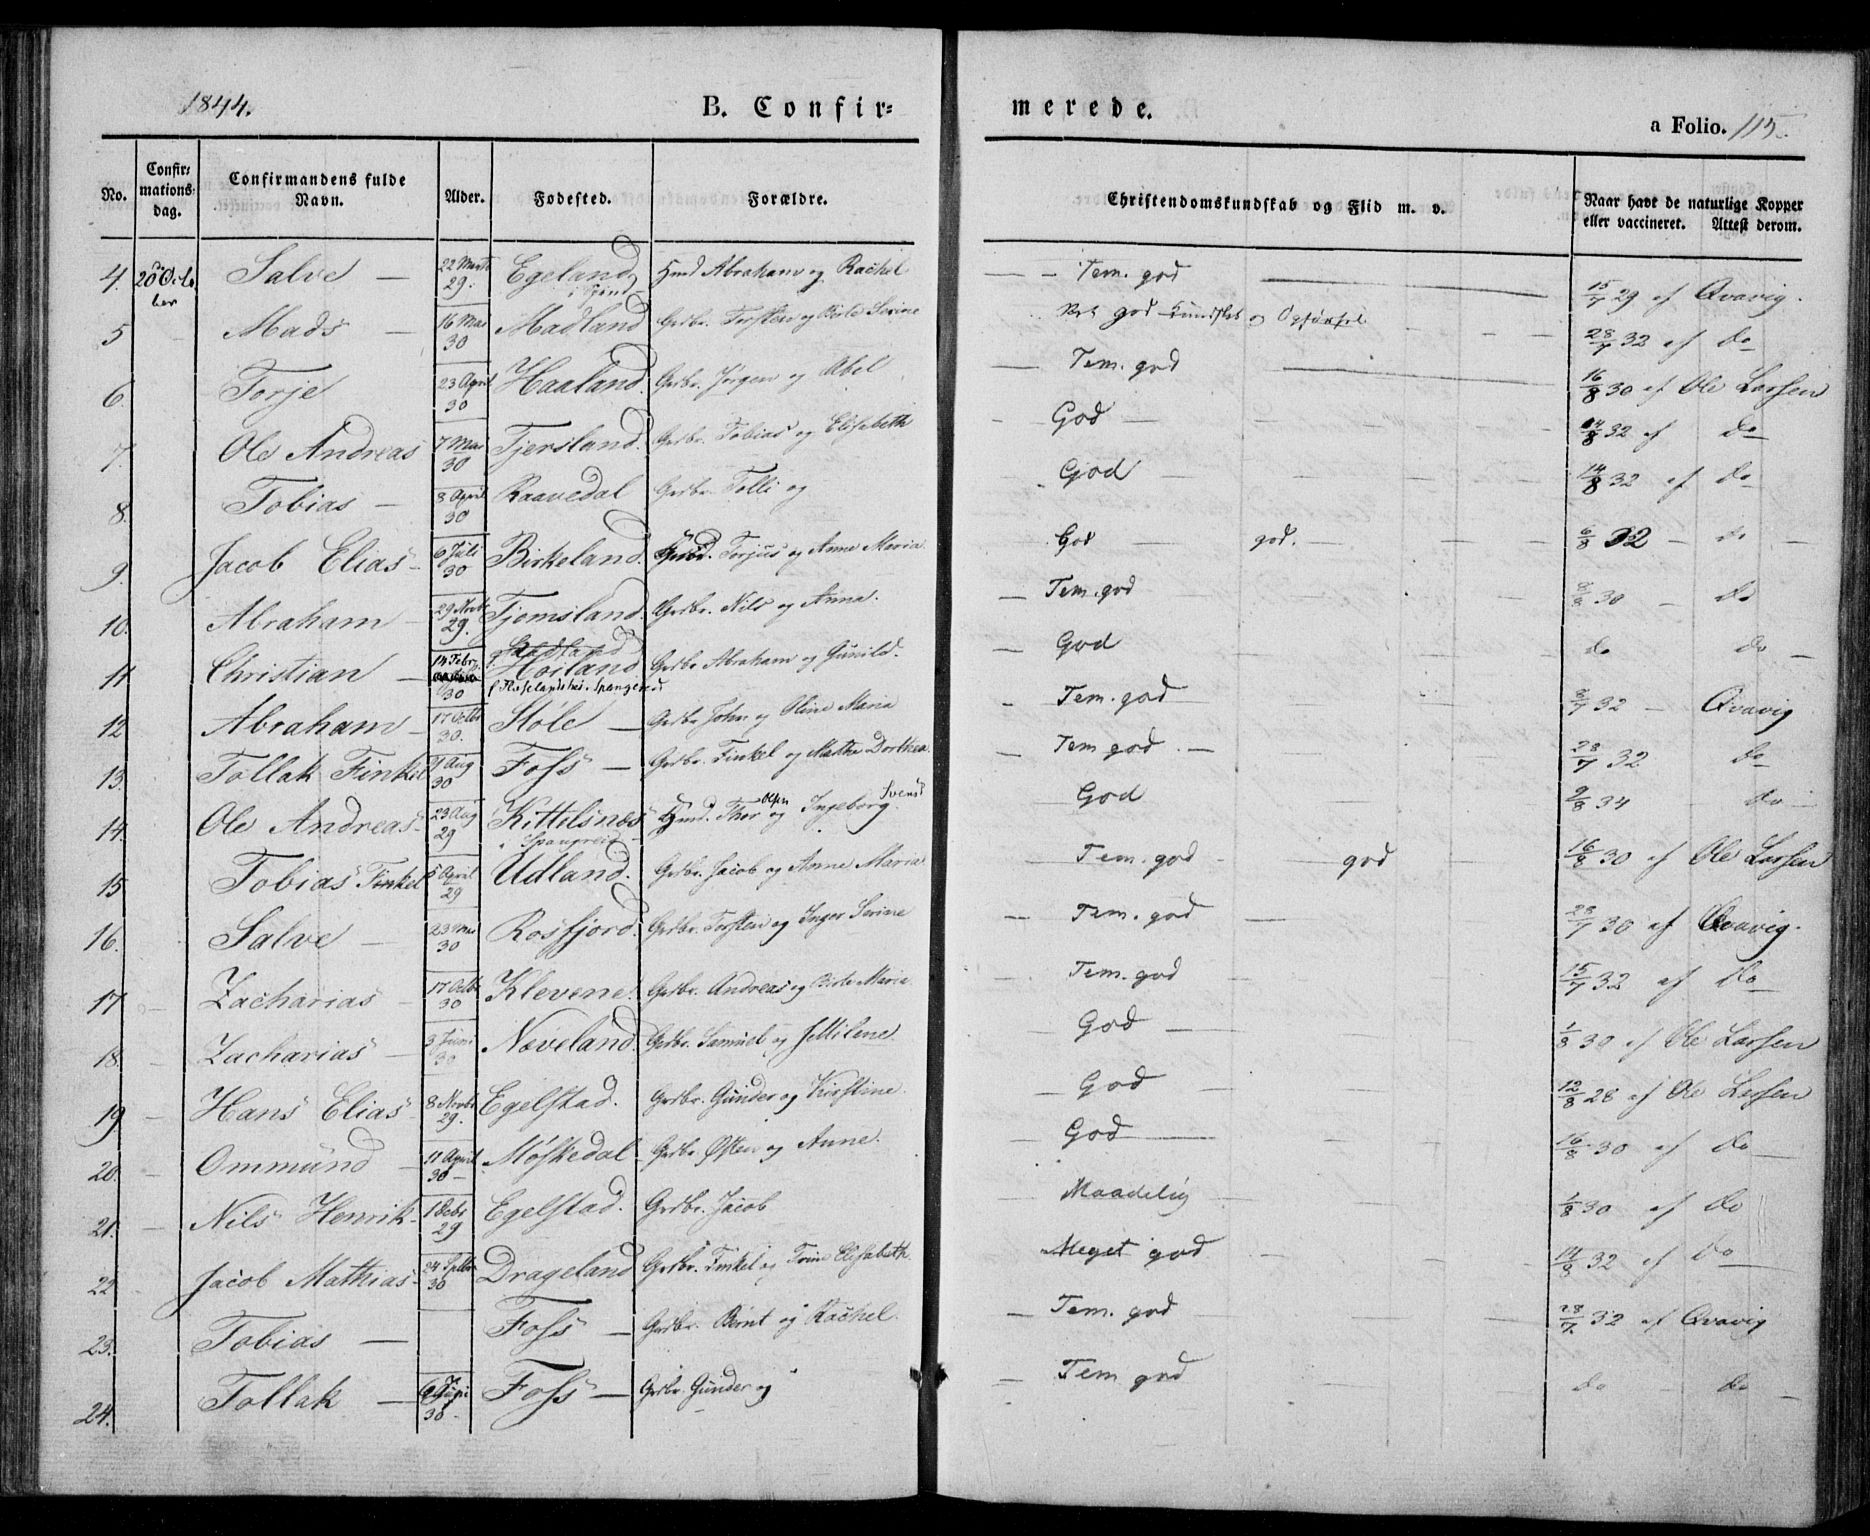 1844.
B. Confir=
merede.
a Folio. 115.
No.
Confir=
mations=
dag.
Confirmandens fulde
Navn.
Alder.
Fødested.
Forældre.
Christendomskundskab og Flid m. v.
Naar havt de naturlige Kopper
eller vaccineret. Attest derom.
4. 20 Octo Salve — 22 Marts Egeland Hmd Abraham og Rachel — Tem. god 15/7 29 af Qvavig.
ber 29. i
5 Mads — 16 Mai Madland Grdbr. Torsten og Berte Serine god Kundskab og Opførsel 28/7 32 af do
30
6. Torje 23 April Haaland. Grdbr. Jørgen og Abel — Tem. god 16/8 30 af Ole Larsen
30
7. Ole Andreas 7 Mai Tjersland. Grdbr. Tobias og Elisabeth God — 14/8 32 af do
30
8. Tobias — 8 April Raavedal Grdbr. Tolli og God — 14/8 32 af do
30
9. Jacob Elias 6 Juli Birkeland. Torjus og Anne Maria God — god. 6/8 32 — do
30
10. Abraham 29 Novbr Tjomsland. Grdbr. Nils og Anna. — Tem. god 30 — do
29.
11 Christian — 14 Febr. Høiland Grdbr Abraham og Gunild. — God do do
30 Spangereid
12 Abraham 17 Octbr Støle — Grdbr John og Oline Maria Tem. god 32 — Qvavig
30.
13. Tollak Finkel 9 Aug Foss — Grdbr. Finkel og Mathe Dorthea — Tem god. 28/7 32 do
30
14. Ole Andreas 23 Aug Kittelsnæs Hmd. Thor Olsen og Ingeborg Svensd God 9/8 34 do
29 i Spangreid
15 Tobias Finkel 5 April Udland. Grdbr. Jacob og Anne Maria Tem. god god 16/8 30 af Ole Larsen
29
16. Salve — 23 Mai Rosfjord. Grdbr. Torsten og Inger Serine — Tem. god 28/7 30 af Qvavig.
30
17 Zacharias 17 Octbr Klevene. Grdbr. Andreas og Berte Maria — Tem. god 15/7 32 af do
30
18. Zacharias 3 Juni Noveland. Grdbr. Samuel og Milene God — 1/8 30 af Ole Larsen
30
19 Hans Elias 8 Novbr Egelstad. Grdbr. Gunder og Kirstine. God 12/8 28 af Ole Larsen
29.
20. Ommund — 11 April Møskedal Grdbr. Østen og Anne. — God 16/8 30 af do
30
21. Nils Henrik 1 Debr Egelstad. Grdbr. Jacob — Maadelig 1/8 30 af do
29
22 Jacob Mathias 24 Septbr Drageland Grdbr. Finkel og Trine Elisabeth Meget god 14/8 32 af do
30
23. Tobias — Foss — Grdbr. Bernt og Rachel. — Tem. god 28/7. 32 af Qvavig
24. Tollak — Foss — Grdbr. Gunder og — Tem god do do
30